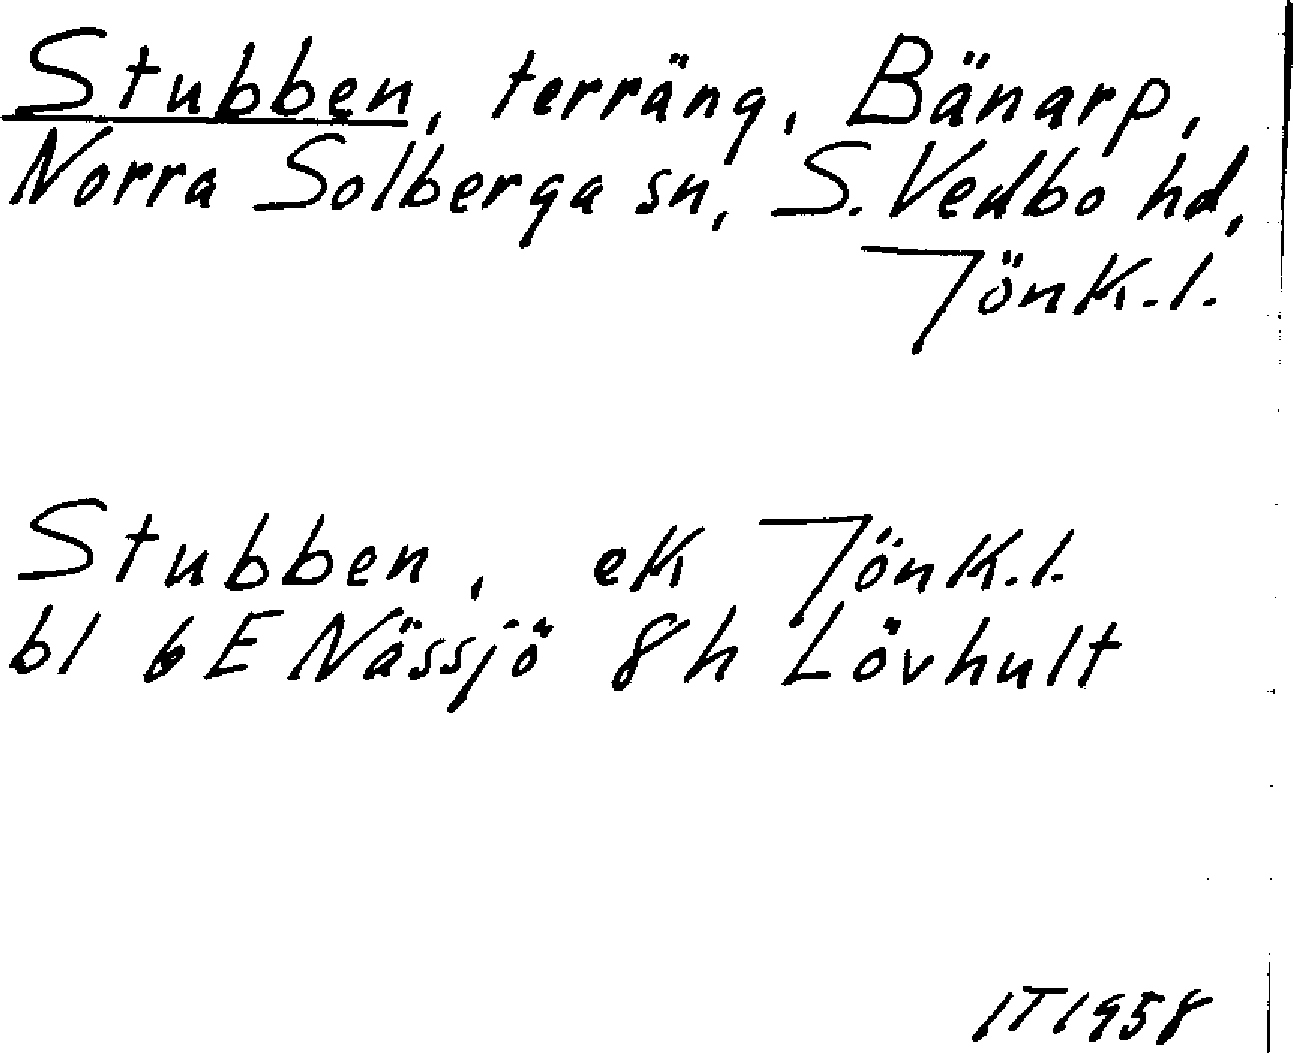 Stubben, terräng, Bänarp,
Norra Solberga sn, S. Vedbo hd,
Jönk.l.
Stubben, ek Jönk.l.
bl 6E Nässjö 8h Lövhult
IT1958